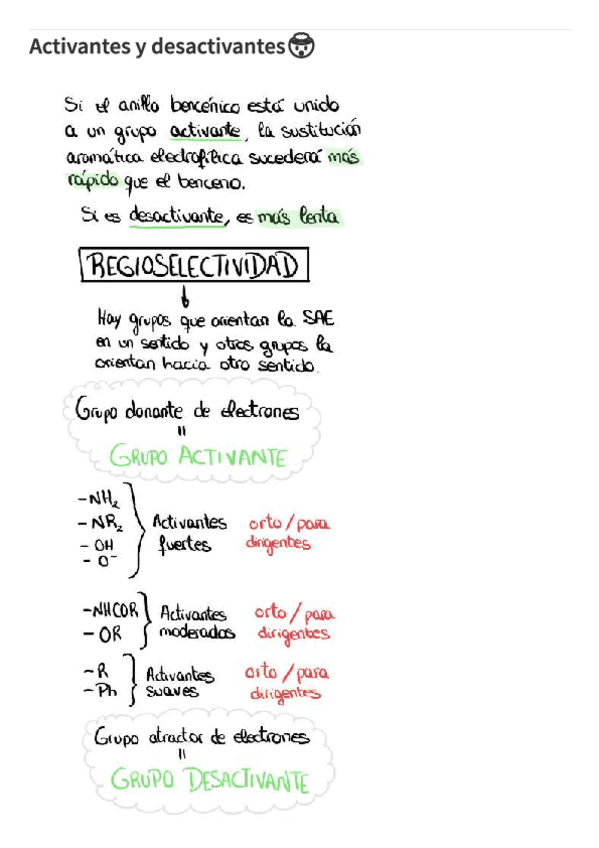 Activantes y desactivantes🤯
Si el anillo bencénico está unido
a un grupo activante, la sustitución
aromática electrofílica sucederá más
rápido que el benceno.
Si es desactivante, es más lenta
REGIOSELECTIVIDAD
Hay grupos que orientan la SAE
en un sentido y otros grupos la
orientan hacia otro sentido.
Grupo donante de electrones
=
GRUPO ACTIVANTE
-NH₂
- NR₂
- OH
- O⁻
Activantes fuertes
orto/para dirigentes
-NHCOR
- OR
Activantes moderados
orto/para dirigentes
-R
-Ph
Activantes suaves
orto/para dirigentes
Grupo atractor de electrones
=
GRUPO DESACTIVANTE